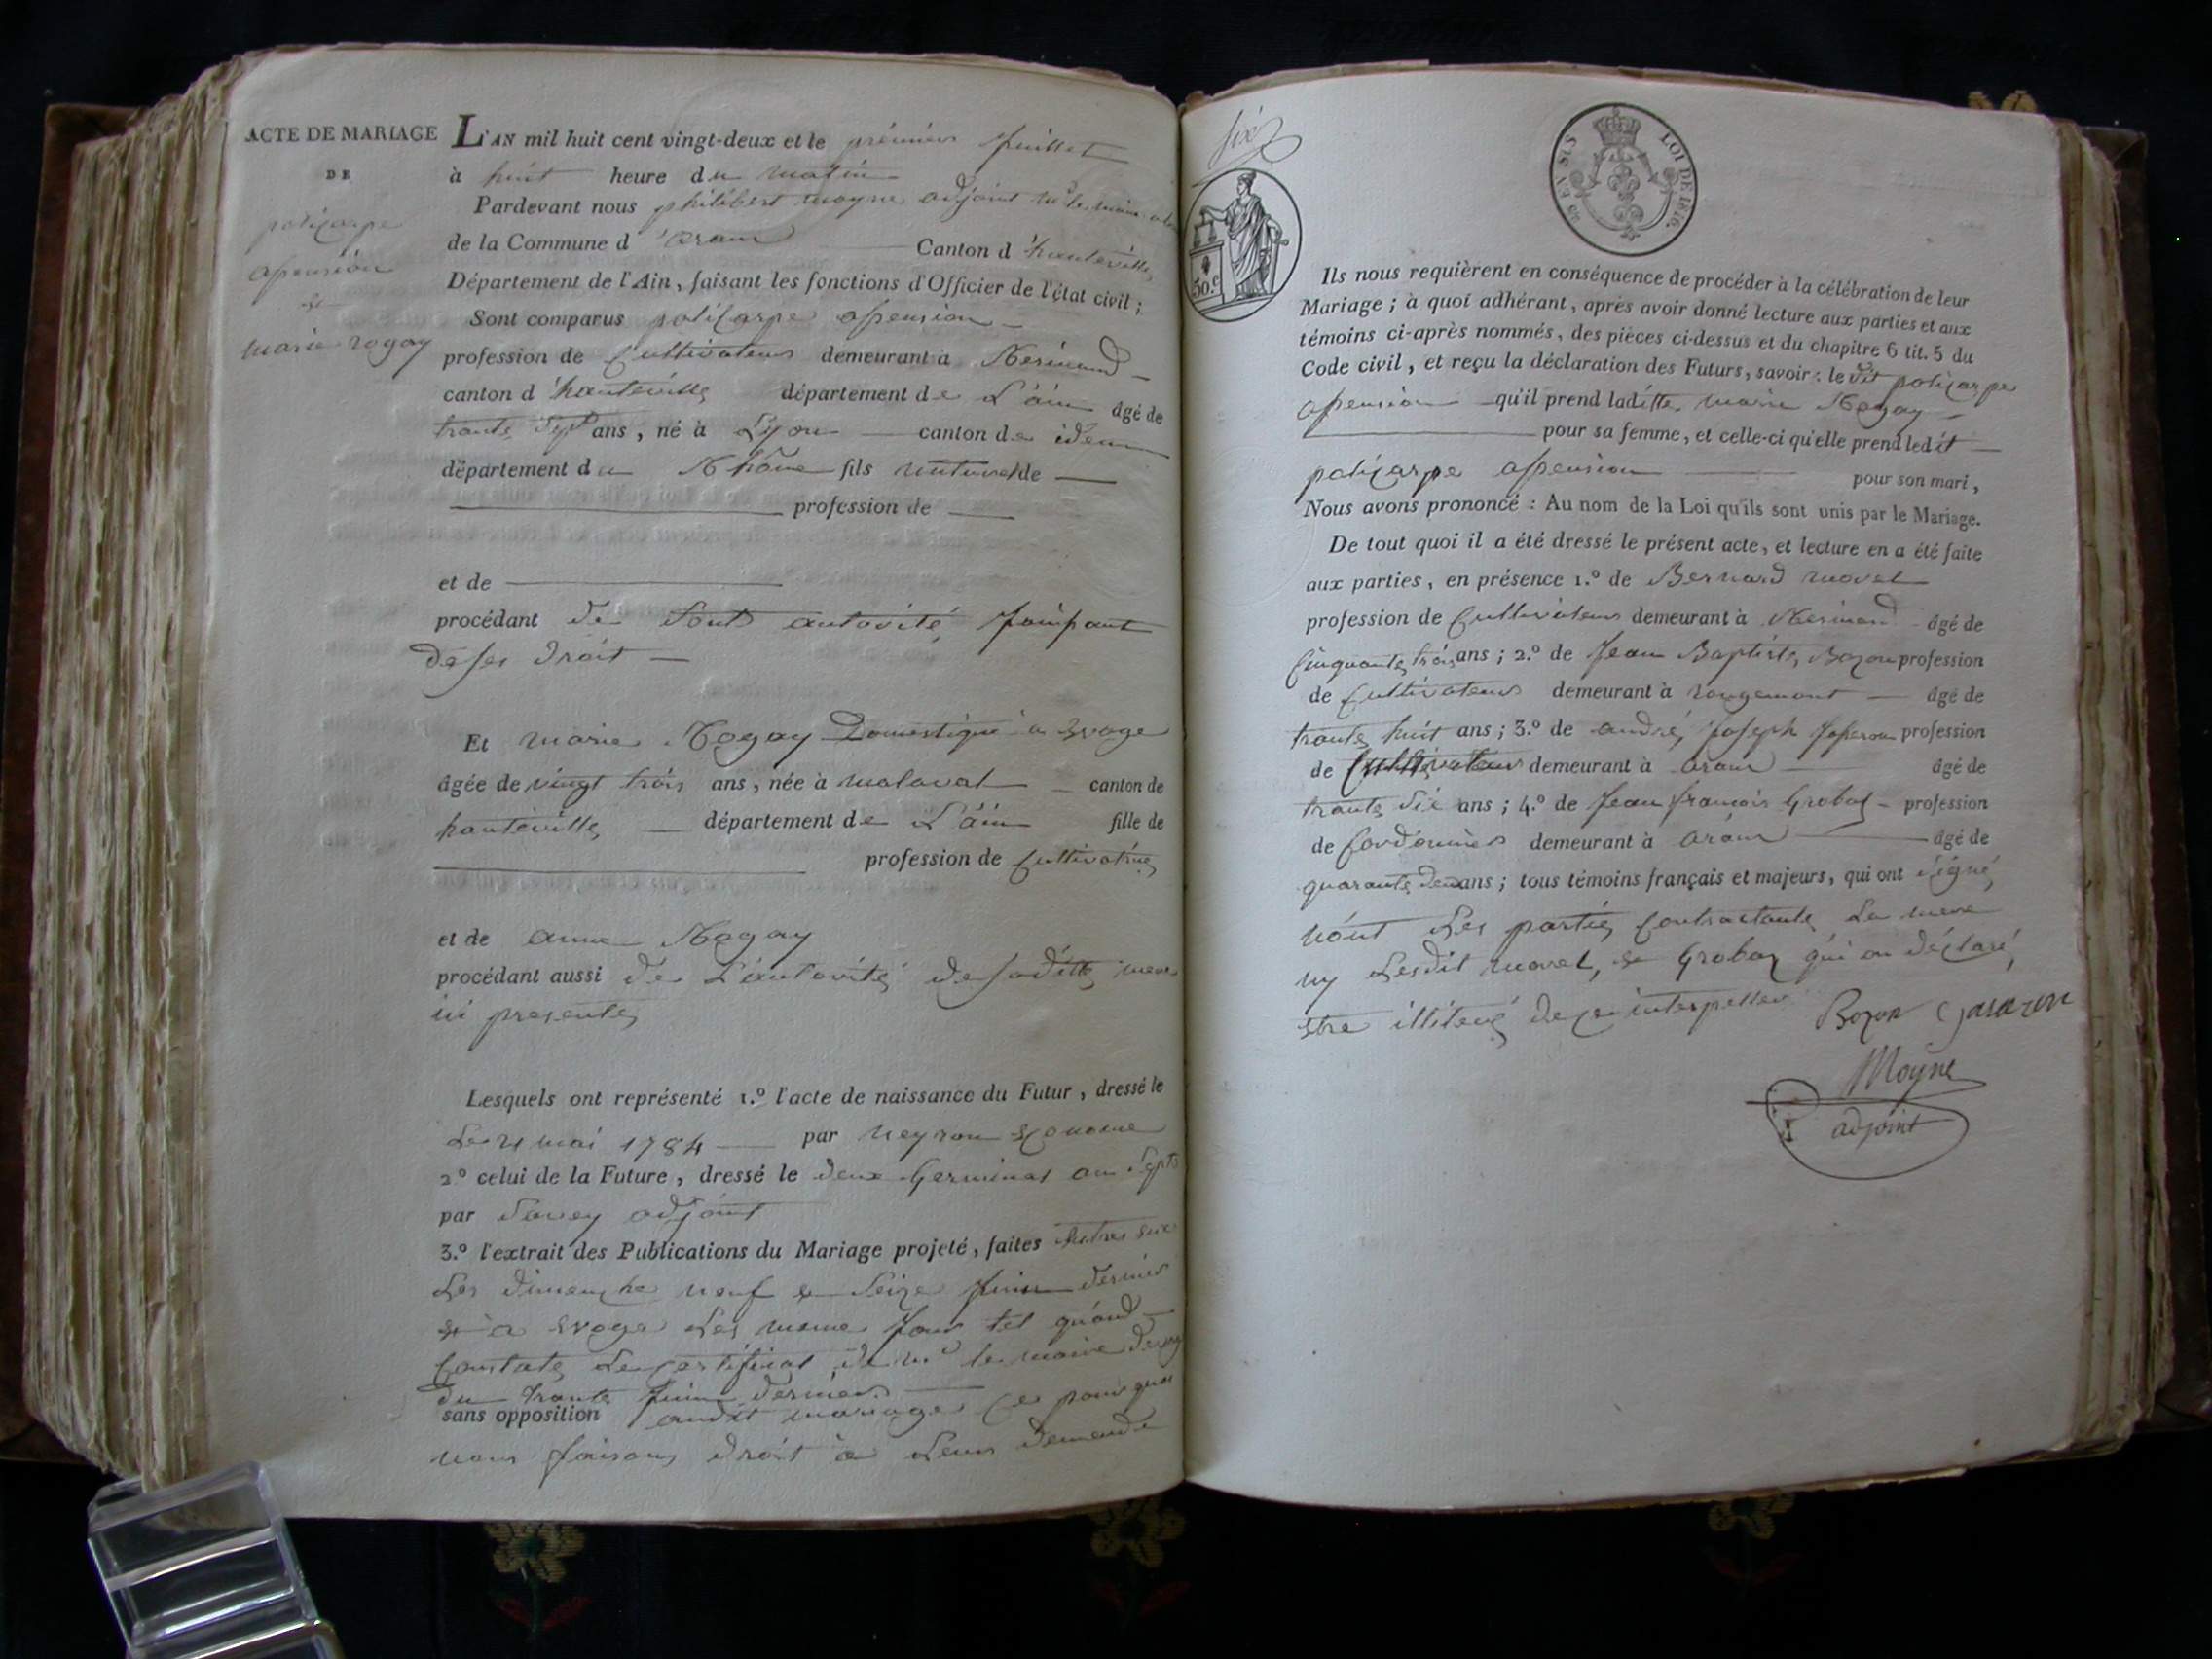 ACTE DE MARIAGE
DE
policarpe
apension
et
marie rogay
L'AN mil huit cent vingt-deux et le prémier juillet
à huit heure du matin
Pardevant nous philibert moyne adjoint
de la Commune d'aranc Canton d'hauteville
Département de l'Ain, faisant les fonctions d'Officier de l'état civil;
Sont comparus policarpe apension
profession de Cultivateur demeurant à
canton d'hauteville département de L'ain âgé de
trante sept ans, né à Lyon canton de idem
département du Rhône fils naturel de
profession de
et de
procédant de Sont autorité jouipant
de ses droit
Et marie Rogay Domestique a Evoge
âgée de vingt trois ans, née à malaval canton de
hauteville département de L'ain fille de
profession de Cultivatrice
et de anne Rogay
procédant aussi de L'autorité de sa ditte mere
ici presente
Lesquels ont représenté 1.º l'acte de naissance du Futur, dressé le
Le 21 mai 1784 par neyron Econome
2º celui de la Future, dressé le deux Germinal an Sept
par Savey adjoint
3.º l'extrait des Publications du Mariage projeté, faites
Les dimanche neuf et Seize juin dernier
et a Evoge Les meme jour tel quand
Constate Le certificat de mr le maire
du trante juin dernier
sans opposition audit mariage Ce pourquoi
nous faisons droit à Leur demande
six
30. C.
EN SUS
LOI DE 1816.
Ils nous requièrent en conséquence de procéder à la célébration de leur
Mariage; à quoi adhérant, après avoir donné lecture aux parties et aux
témoins ci-après nommés, des pièces ci-dessus et du chapitre 6 tit. 5 du
Code civil, et reçu la déclaration des Futurs, savoir: le dit policarpe
apension qu'il prend laditte marie Rogay
pour sa femme, et celle-ci qu'elle prend ledit
policarpe apension pour son mari,
Nous avons prononcé: Au nom de la Loi qu'ils sont unis par le Mariage.
De tout quoi il a été dressé le présent acte, et lecture en a été faite
aux parties, en présence 1.º de Bernard morel
profession de Cultivateur demeurant à âgé de
Cinquante trois ans; 2.º de Jean Baptiste Bozon profession
de Cultivateur demeurant à rougemont âgé de
trante huit ans; 3.º de andré joseph profession
de Cultivateur demeurant à aranc âgé de
trante Six ans; 4.º de Jean françois Grobas profession
de Cordonnier demeurant à aranc âgé de
quarante deux ans; tous témoins français et majeurs, qui ont Signé
nont Les partie Contractante La mere
ny Lesdit morel, et Grobas qui on déclaré
etre illiteré de ce interpeller
Bozon
Moyne
adjoint